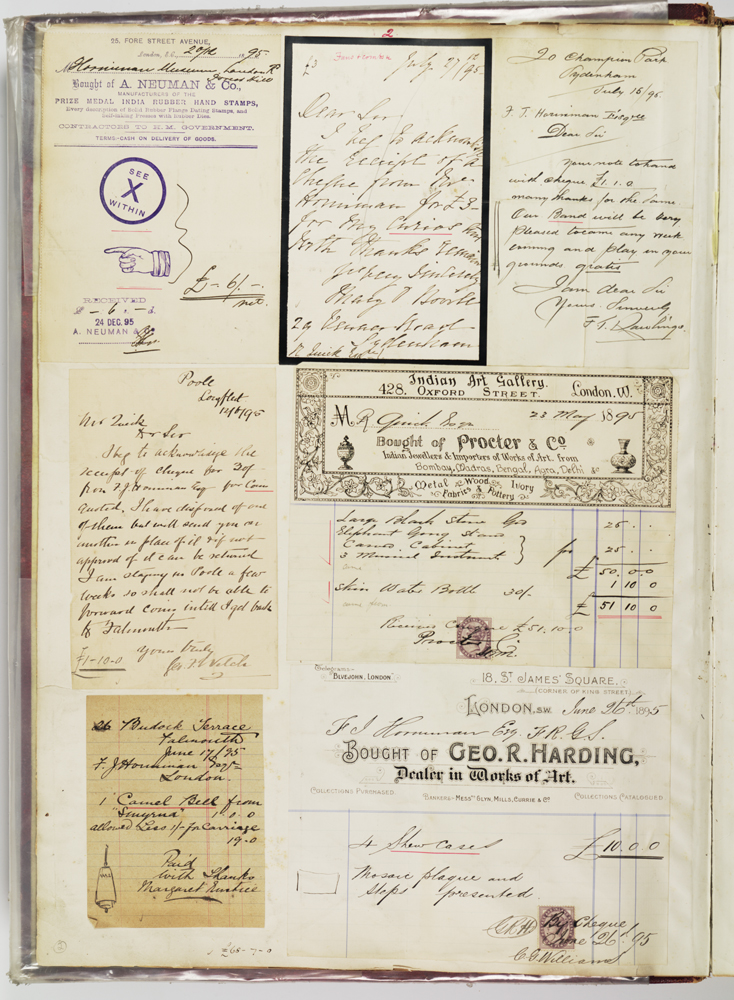 2
25, FORE STREET AVENUE,
London, E.C. 1895
Horniman Museum London Rd
Forest Hill
Bought of A. NEUMAN & Co.,
MANUFACTURERS OF THE
PRIZE MEDAL INDIA RUBBER HAND STAMPS,
Every description of Solid Rubber Flange Dating Stamps, and
Self-Inking Presses with Rubber Dies.
CONTRACTORS TO H.M. GOVERNMENT.
TERMS-CASH ON DELIVERY OF GOODS.
SEE
X
WITHIN
£ - 6/- -.
net.
RECEIVED
£ - 6 s. - d.
24 DEC. 95
A. NEUMAN & Co.
£3
July 27/95
Dear Sir
I beg to acknowledge
the receipt of a
cheque from Mr
Horniman for £3-
for my Curios
With thanks I remain
yours sincerely
Mary
29 Road
Sydenham
R Quick Esq
20 Champion Park
Sydenham
July 16/95
F. J. Horniman Esqre
Dear Sir
Your note to hand
with cheque £1.1.0
many thanks for the same
Our Band will be very
pleased to come any week
evening and play in your
grounds gratis
I am dear Sir
Yours Sincerely
F. J. Rawlings.
Poole
Longfleet
14/6/95
Mr Quick
Dr Sir
I beg to acknowledge the
receipt of cheque for 30/-
from F J Horniman Esq for Coins
quoted, I have disposed of one
of them but will send you on
another in place of it & if not
approved of it can be returned
I am staying in Poole a few
weeks so shall not be able to
forward coins until I get back
to Falmouth
Yours truly
£1-10-0
Indian Art Gallery.
428, OXFORD STREET. London, W.
M R Quick Esqr 23 May 1895
Bought of Procter & Co.
Indian Jewellers & Importers of Works of Art, from
Bombay, Madras, Bengal, Agra, Delhi &c
Metal Wood Ivory
Fabrics & Pottery
Large Black Stone 25 . .
Elephant Gong Stand
Carved Cabinet for 25 . .
3 Musical Instrument
£ 50.0.0
Skin Water Bottle 30/- 1 10 0
£ 51 10 0
Received Cheque £51.10.0
26 Budock Terrace
Falmouth
June 17/95
F. J Horniman Esqre
London.
1 Camel Bell from
"Smyrna" 1 0.0
allowed less 1/- for Carriage
19-0
Paid
With Thanks
Margaret Eustice
£65-7-0
Telegrams-
"BLUEJOHN, LONDON"
18, ST JAMES' SQUARE,
(CORNER OF KING STREET)
LONDON, S.W. June 26th 1895
F J Horniman Esq. F.R.G.S.
BOUGHT OF GEO. R. HARDING,
Dealer in Works of Art.
COLLECTIONS PURCHASED
BANKERS-MESSRS GLYN, MILLS, CURRIE & Co
COLLECTIONS CATALOGUED
4 Shew cases £10.0.0
Mosaic plaque and
steps presented.
G.R.H
By Cheque
June 26/95
C. G. Williams